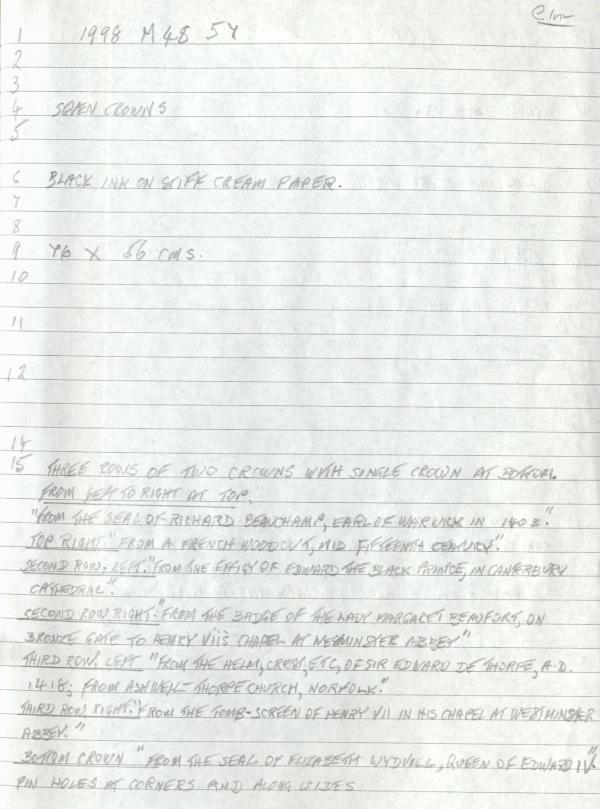 1 1998 M48 54
2
3
4 SEVEN CROWNS
5
6 BLACK INK ON STIFF CREAM PAPER.
7
8
9 46 X 56 CMS.
10
11
12
14
15 THREE ROWS OF TWO CROWNS WITH SINGLE CROWN AT BOTTOM.
FROM LEFT TO RIGHT AT TOP.
"FROM THE SEAL OF RICHARD BEAUCHAMP, EARL OF WARWICK IN 1403."
TOP RIGHT. "FROM A FRENCH WOODCUT, MID FIFTEENTH CENTURY".
SECOND ROW: LEFT. "FROM THE EFFIGY OF EDWARD THE BLACK PRINCE, IN CANTERBURY
CATHEDRAL".
SECOND ROW RIGHT. "FROM THE BADGE OF THE LADY MARGARET BEAUFORT, ON
BRONZE GATE TO HENRY VII'S CHAPEL AT WESTMINSTER ABBEY"
THIRD ROW. LEFT "FROM THE HELM, CREST, ETC, OF SIR EDWARD DE THORPE, A.D.
1418; FROM ASHWELL-THORPE CHURCH, NORFOLK."
THIRD ROW RIGHT. "FROM THE TOMB-SCREEN OF HENRY VII IN HIS CHAPEL AT WESTMINSTER
ABBEY."
BOTTOM CROWN "FROM THE SEAL OF ELIZABETH WYDVILL, QUEEN OF EDWARD IV".
PIN HOLES AT CORNERS AND ALONG SIDES